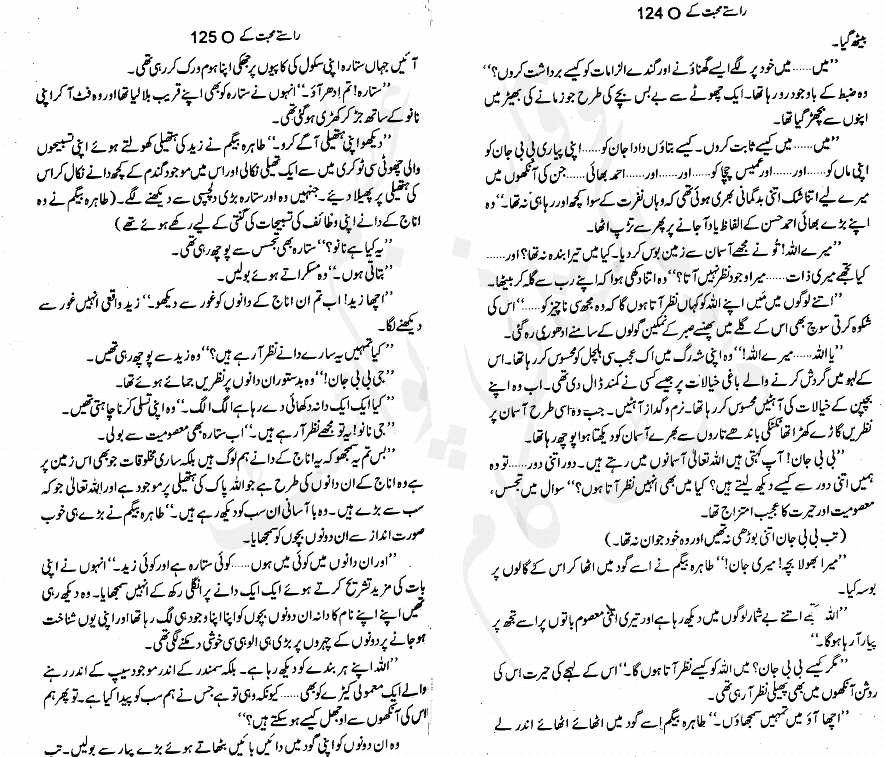 راستے محبت کے O 124
بیٹھ گیا۔
”میں……میں خود پر لگے ایسے گھناؤنے اور گندے الزامات کو کیسے برداشت کروں؟“
وہ ضبط کے باوجود رو رہا تھا۔ ایک چھوٹے سے بے بس بچے کی طرح جو زمانے کی بھیڑ میں
اپنوں سے بچھڑ گیا تھا۔
”میں……میں کیسے ثابت کروں۔ کیسے بتاؤں دادا جان کو……اپنی پیاری بی بی جان کو
اپنی ماں کو……اور……اور عمیس چچا کو……اور……اور……احمد بھائی……جن کی آنکھوں میں
میرے لیے اتنا شک اتنی بدگمانی بھری ہوئی تھی کہ وہاں نفرت کے سوا کچھ اور رہا ہی نہ تھا۔“ وہ
اپنے بڑے بھائی احمد حسن کے الفاظ یاد آ جانے پر پھر سے تڑپ اٹھا۔
”میرے اللہ! تُو نے مجھے آسمان سے زمین بوس کر دیا۔ کیا میں تیرا بندہ نہ تھا؟ اور……
کیا تجھے میری ذات……میرا وجود نظر نہیں آتا؟“ وہ اتنا دکھی ہوا کہ اپنے رب سے گلہ کر بیٹھا۔
”اتنے لوگوں میں مَیں اپنے اللہ کو کہاں نظر آتا ہوں گا کہ وہ مجھ سی ناچیز کو……“ اس کی
شکوہ کرتی سوچ بھی اس کے گلے میں پھنسے صبر کے نمکین گولوں کے سامنے ادھوری رہ گئی۔
”یا اللہ……میرے اللہ!“ وہ اپنی شہ رگ میں اک عجب سی ہلچل کو محسوس کر رہا تھا۔ اس
کے لہو میں گردش کرنے والے باغی خیالات پر جیسے کسی نے کمند ڈال دی تھی۔ اب وہ اپنے
بچپن کے خیالات کی آہٹیں محسوس کر رہا تھا۔ نرم و گداز آہٹیں۔ جب وہ اسی طرح آسمان پر
نظریں گاڑے کھڑا تھا ٹکٹکی باندھے تاروں سے بھرے آسمان کو دیکھتا ہوا پوچھ رہا تھا۔
”بی بی جان! آپ کہتی ہیں اللہ تعالیٰ آسمانوں میں رہتے ہیں۔ دور اتنی دور……تو وہ
ہمیں اتنی دور سے کیسے دیکھ لیتے ہیں؟ کیا میں بھی انہیں نظر آتا ہوں؟“ سوال میں تجسس،
معصومیت اور حیرت کا عجیب امتزاج تھا۔
(تب بی بی جان اتنی بوڑھی نہ تھیں اور وہ خود جوان نہ تھا۔)
”میرا بھولا بچہ! میری جان!“ طاہرہ بیگم نے اسے گود میں اٹھا کر اس کے گالوں پر
بوسہ کیا۔
”اللہ اتنے بے شمار لوگوں میں دیکھ رہا ہے اور تیری اتنی معصوم باتوں پر اسے تجھ پر
پیار آ رہا ہو گا۔“
”مگر کیسے بی بی جان؟ میں اللہ کو کیسے نظر آتا ہوں گا۔“ اس کے لہجے کی حیرت اس کی
روشن آنکھوں میں بھی پھیلی نظر آ رہی تھی۔
”اچھا آؤ میں تمہیں سمجھاؤں۔“ طاہرہ بیگم اسے گود میں اٹھائے اٹھائے اندر لے
راستے محبت کے O 125
آئیں جہاں ستارہ اپنی سکول کی کاپیوں پر جھکی اپنا ہوم ورک کر رہی تھی۔
”ستارہ! تم اِدھر آؤ۔“ انہوں نے ستارہ کو بھی اپنے قریب بلا لیا تھا اور وہ فٹ آ کر اپنی
نانو کے ساتھ جڑ کر کھڑی ہو گئی تھی۔
”دیکھو اپنی ہتھیلی آگے کرو۔“ طاہرہ بیگم نے زید کی ہتھیلی کھولتے ہوئے اپنی تسبیحوں
والی چھوٹی سی ٹوکری میں سے ایک تھیلی نکالی اور اس میں موجود گندم کے کچھ دانے نکال کر اس
کی ہتھیلی پر پھیلا دیئے۔ جنہیں وہ اور ستارہ بڑی دلچسپی سے دیکھنے لگے۔ (طاہرہ بیگم نے وہ
اناج کے دانے اپنی وظائف کی تسبیحات کی گنتی کے لیے رکھے ہوئے تھے)
”یہ کیا ہے نانو؟“ ستارہ بھی تجسس سے پوچھ رہی تھی۔
”بتاتی ہوں۔“ وہ مسکراتے ہوئے بولیں۔
”اچھا زید! اب تم ان اناج کے دانوں کو غور سے دیکھو۔“ زید واقعی انہیں غور سے
دیکھنے لگا۔
”کیا تمہیں یہ سارے دانے نظر آ رہے ہیں؟“ وہ زید سے پوچھ رہی تھیں۔
”جی بی بی جان!“ وہ بدستور ان دانوں پر نظریں جمائے ہوئے تھا۔
”کیا ایک ایک دانہ دکھائی دے رہا ہے الگ الگ۔“ وہ اپنی تسلی کرنا چاہتی تھیں۔
”جی نانو! یہ تو مجھے نظر آ رہے ہیں۔“ اب ستارہ بھی معصومیت سے بولی۔
”بس تم یہ سمجھو کہ یہ اناج کے دانے ہم لوگ ہیں بلکہ ساری مخلوقات جو بھی اس زمین پر
ہے وہ اناج کے ان دانوں کی طرح ہے جو اللہ پاک کی ہتھیلی پر موجود ہے اور اللہ تعالیٰ جو کہ
سب سے بڑے ہیں۔ وہ باآسانی ان سب کو دیکھ رہے ہیں۔“ طاہرہ بیگم نے بڑے ہی خوب
صورت انداز سے ان دونوں بچوں کو سمجھایا۔
”اور ان دانوں میں کوئی میں ہوں……کوئی ستارہ ہے اور کوئی زید۔“ انہوں نے اپنی
بات کی مزید تشریح کرتے ہوئے ایک ایک دانے پر انگلی رکھ کے انہیں سمجھایا۔ وہ دیکھ رہی
تھیں اپنے اپنے نام کا دانہ ان دونوں بچوں کو اپنا اپنا وجود ہی لگ رہا تھا اور اپنی یوں شناخت
ہو جانے پر دونوں کے چہروں پر بڑی ہی الوہی سی خوشی دمکنے لگی تھی۔
”اللہ اپنے ہر بندے کو دیکھ رہا ہے۔ بلکہ سمندر کے اندر موجود سیپ کے اندر رہنے
والے ایک معمولی کیڑے کو بھی……کیونکہ وہی تو ہے جس نے ہم سب کو پیدا کیا ہے۔ تو پھر ہم
اس کی آنکھوں سے اوجھل کیسے ہو سکتے ہیں؟“
وہ ان دونوں کو اپنی گود میں دائیں بائیں بٹھاتے ہوئے بڑے پیار سے بولیں۔ تب